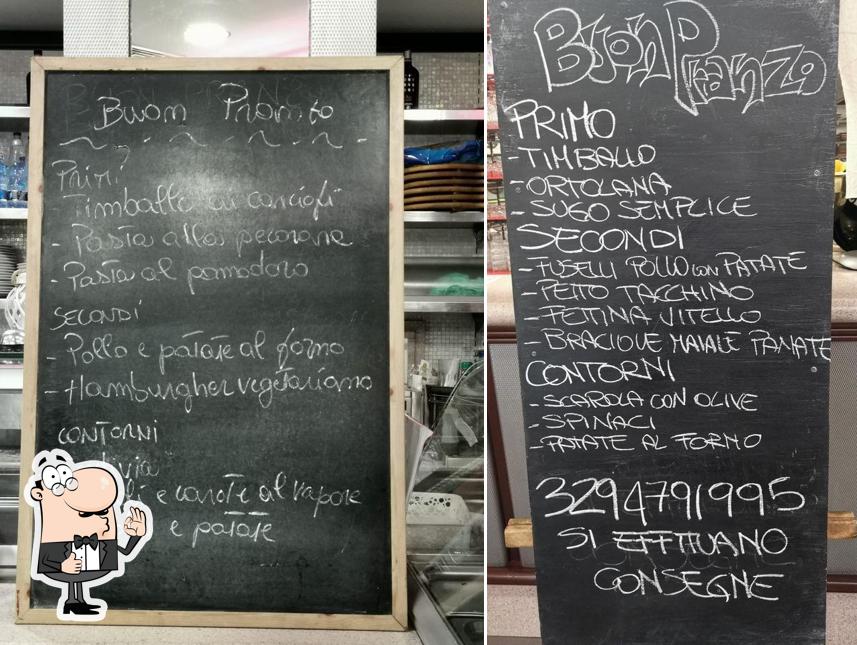 Buon Pranzo
Primi
Timballo ai carciofi
- Pasta alla pecorara
- Pasta al pomodoro
SECONDI
- Pollo e patate al forno
- Hamburgher vegetariano
CONTORNI
e carote al vapore
e patate
Buon Pranzo
PRIMO
- TIMBALLO
- ORTOLANA
- SUGO SEMPLICE
SECONDI
- FUSELLI POLLO con PATATE
- PETTO TACCHINO
- FETTINA VITELLO
- BRACIOLE MAIALE PANATE
CONTORNI
- SCAROLA CON OLIVE
- SPINACI
- PATATE AL FORNO
3294791995
SI EFFTTUANO
CONSEGNE